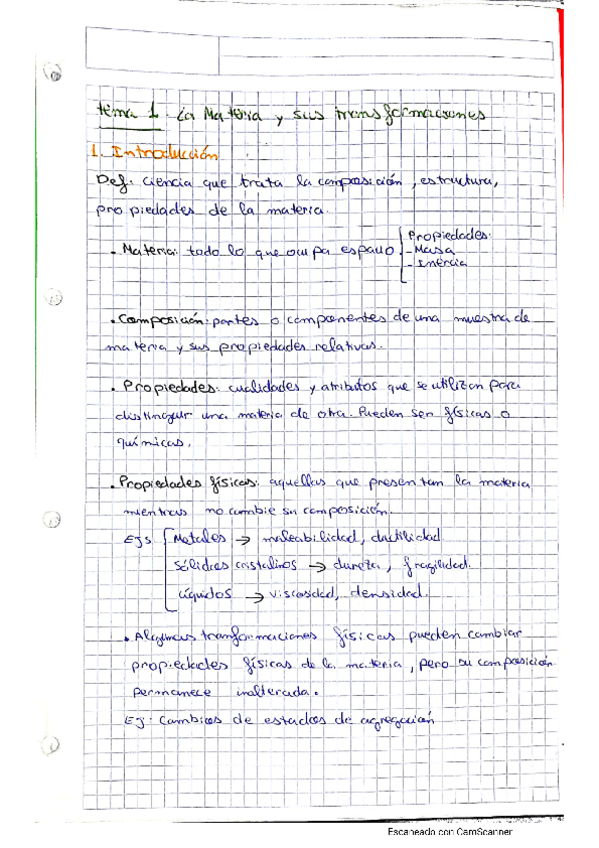 tema 1. La Materia y sus transformaciones
1. Introducción
Def: ciencia que trata la composición, estructura,
propiedades de la materia.
• Materia: todo lo que ocupa espacio
Propiedades:
- Masa
- Inercia
• Composición: partes o componentes de una muestra de
materia y sus propiedades relativas.
• Propiedades: cualidades y atributos que se utilizan para
distinguir una materia de otra. Pueden ser físicas o
químicas.
• Propiedades físicas: aquellas que presentan la materia
mientras no cambie su composición.
Ejs
Metales → maleabilidad, ductilidad.
Sólidos cristalinos → dureza, fragilidad.
Líquidos → viscosidad, densidad.
• Algunas transformaciones físicas pueden cambiar
propiedades físicas de la materia, pero su composición
permanece inalterada.
Ej: Cambios de estados de agregación
Escaneado con CamScanner